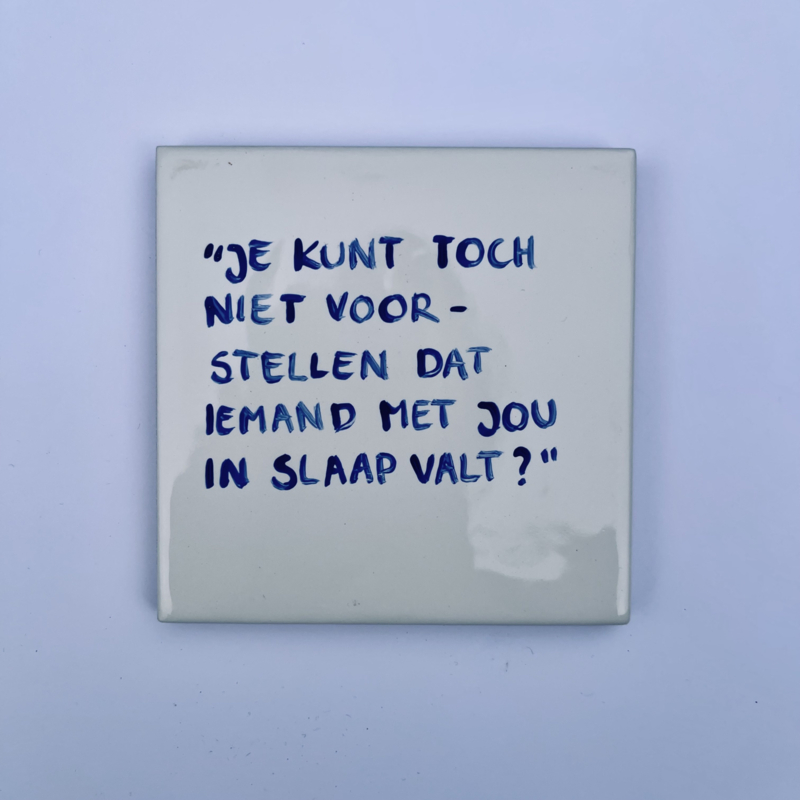 "JE KUNT TOCH
NIET VOOR-
STELLEN DAT
IEMAND MET JOU
IN SLAAP VALT?"